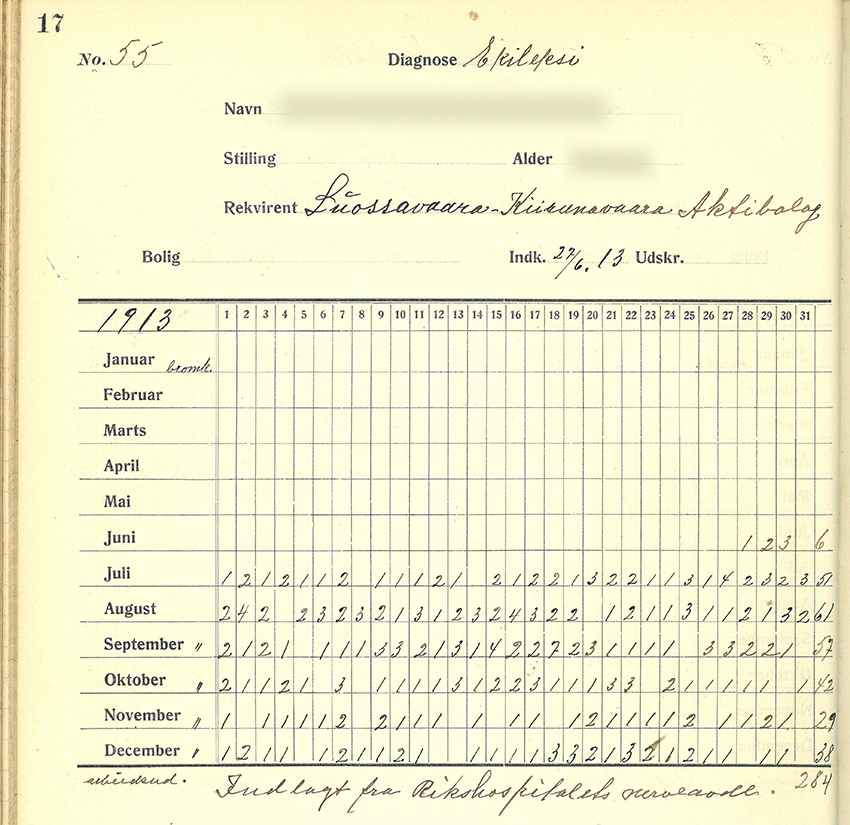 17
No. 55 Diagnose Ekileksi
Navn
Stilling Alder
Rekvirent Luossavaara-Kiirunavaara Aktibolag
Bolig Indk. 27/6. 13 Udskr.
1913 1 2 3 4 5 6 7 8 9 10 11 12 13 14 15 16 17 18 19 20 21 22 23 24 25 26 27 28 29 30 31
Januar bromk.
Februar
Marts
April
Mai
Juni 1 2 3 6
Juli 1 2 1 2 1 1 2 1 1 1 2 1 2 1 2 2 1 3 2 2 1 1 3 1 4 2 3 2 3 51
August 2 4 2 2 3 2 3 2 1 3 1 2 3 2 4 3 2 2 1 2 1 1 3 1 1 2 1 3 2 61
September " 2 1 2 1 1 1 1 3 3 2 1 3 1 4 2 2 7 2 3 1 1 1 1 3 3 2 2 1 57
Oktober " 2 1 1 2 1 3 1 1 1 1 3 1 2 2 3 1 1 1 3 3 2 1 1 1 1 1 1 42
November " 1 1 1 1 1 2 2 1 1 1 1 1 1 1 2 1 1 1 1 2 1 1 2 1 29
December " 1 2 1 1 1 2 1 1 2 1 1 1 1 1 3 3 2 1 3 2 1 2 1 1 1 1 38
284
Indlagt fra Rikshospitalets nerveavdl.